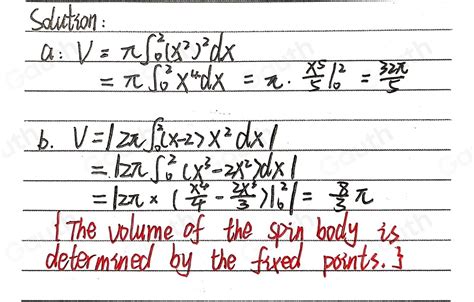 Solution:
a: V = π∫₀²(x²)²dx
= π∫₀² x⁴dx = π · x⁵/5 |₀² = 32π/5
b. V = |2π∫₀²(x-2) x² dx|
= |2π∫₀² (x³-2x²)dx|
= |2π × (x⁴/4 - 2x³/3)|₀²| = 8/3 π
{The volume of the spin body is
determined by the fixed points.}